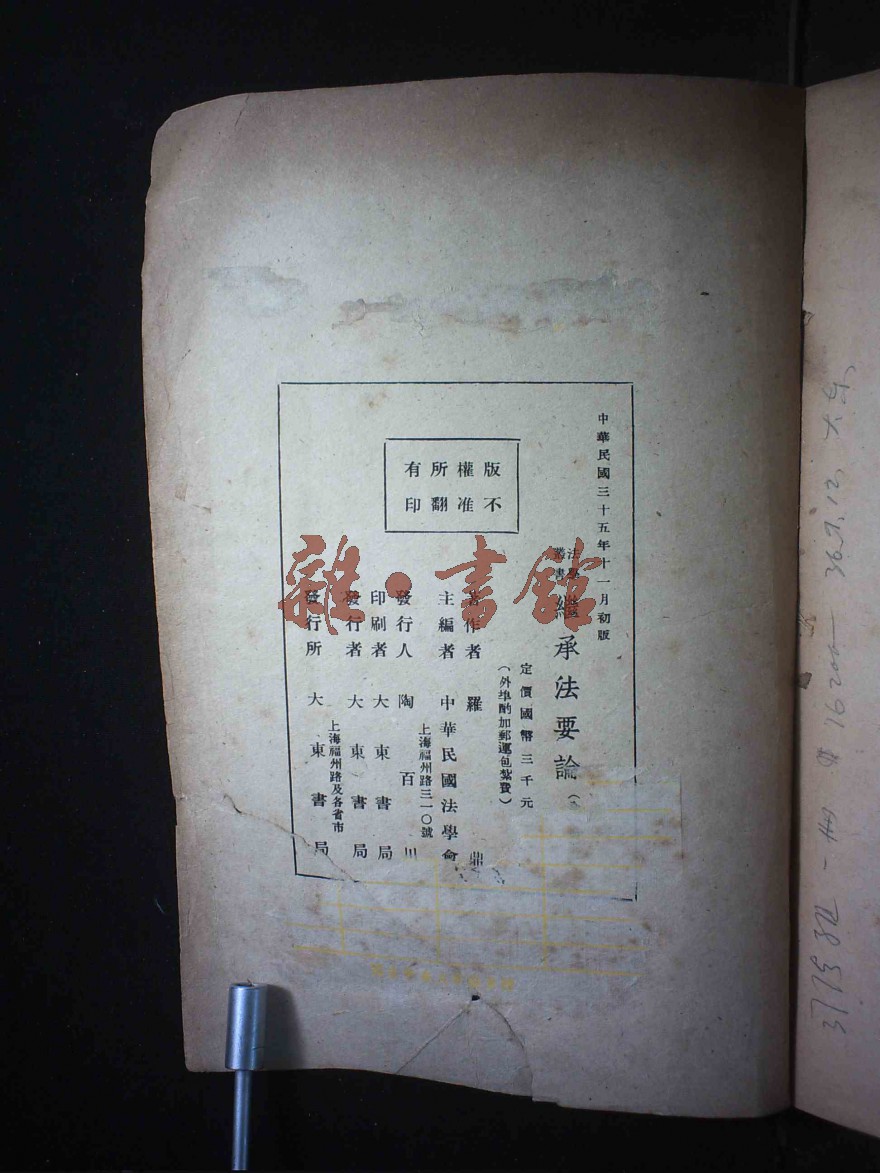 中華民國三十五年十一月初版
法學叢書
繼承法要論
定價國幣三千元
(外埠酌加郵運包紮費)
版權所有
不准翻印
著作者 羅鼎
主編者 中華民國法學會
上海福州路三一〇號
發行人 陶百川
印刷者 大東書局
發行者 大東書局
上海福州路及各省市
發行所 大東書局
雜·書館